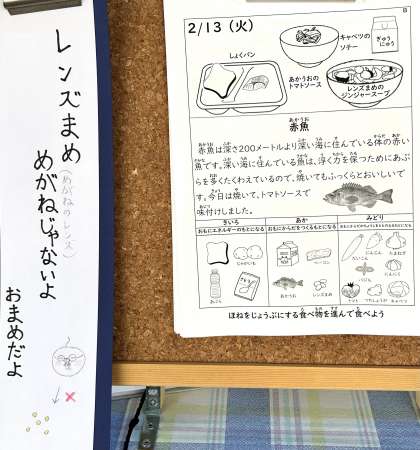 レンズまめ
(めがねのレンズ)
めがねじゃないよ
おまめだよ
2/13(火)
しょくパン
あかうおの
トマトソース
キャベツの
ソテー
ぎゅう
にゅう
レンズまめの
ジンジャースープ
あかうお
赤魚
赤魚は深さ200メートルより深い海に住んでいる体の赤い
魚です。深い海に住んでいる魚は、浮く力を保つためにあぶ
らを多くたくわえているので、焼いてもふっくらとおいしいで
す。今日は焼いて、トマトソースで
味付けしました。
きいろ
おもにエネルギーのもとになる
じゃがいも
あか
おもにからだをつくるもとになる
ベーコン
あかうお
レンズまめ
みどり
だいこん
にんじん
たまねぎ
にんにく
トマト
キャベツ
ほねをじょうぶにする食べ物を進んで食べよう